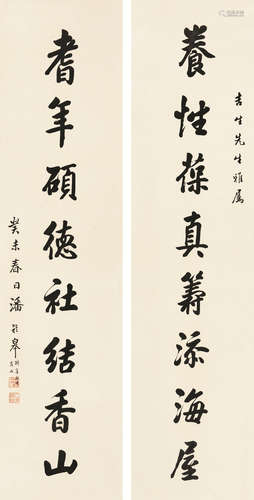 吉生先生雅属
養性葆真籌添海屋
耆年碩德社結香山
癸未春日潘齡皋